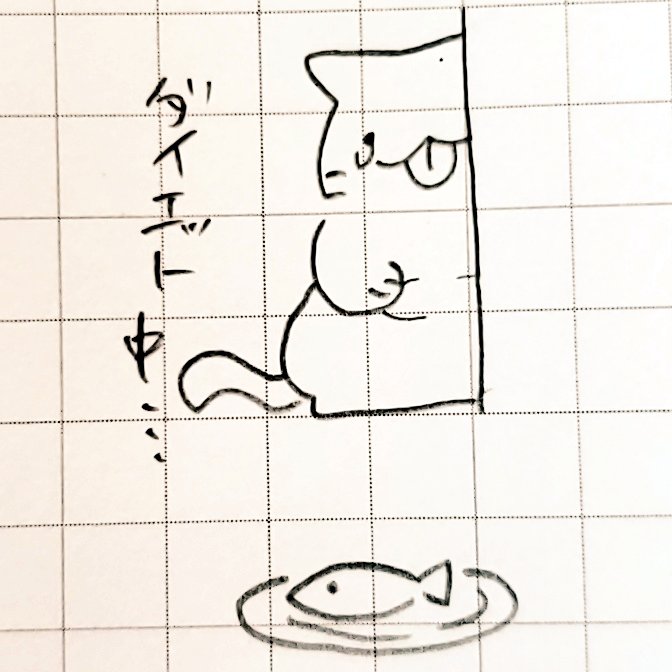 ダイエット中…